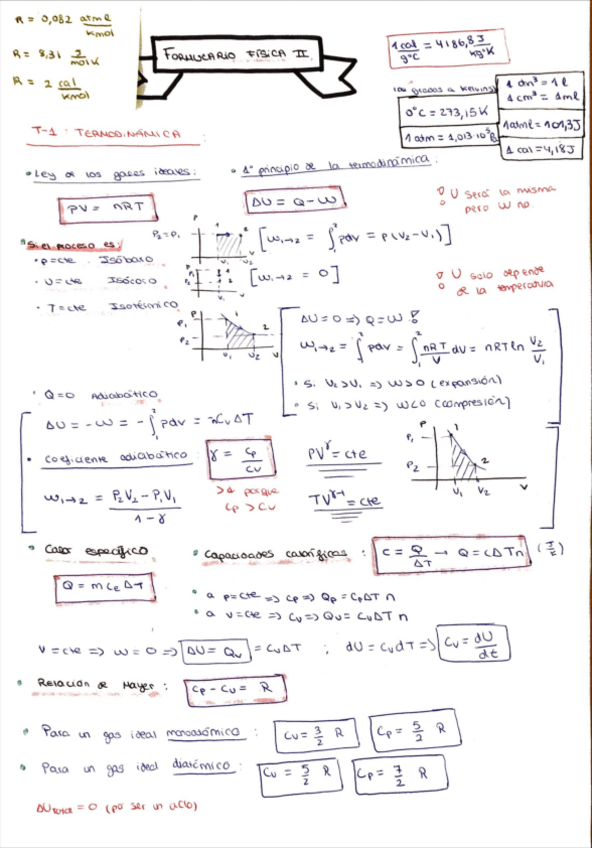 R = 0,082 atm·l / K·mol
R = 8,31 J / mol·K
R = 2 cal / K·mol
FORMULARIO FÍSICA II
1 cal / g°C = 4186,8 J / kg°K
0°C = 273,15 K
1 atm = 1,013·10⁵
1 dm³ = 1 l
1 cm³ = 1 ml
1 atm·l = 101,3 J
1 cal = 4,18 J
T-1: TERMODINÁMICA
• Ley de los gases ideales:
PV = nRT
• 1er principio de la termodinámica:
ΔU = Q - W
U será la misma
pero W no.
• Si el proceso es:
• p=cte Isóbaro
P₂=P₁ P 1 2 V₁ V₂ V
[W₁→₂ = ∫₁² pdv = p(V₂-V₁)]
• V=cte Isócoro
[W₁→₂ = 0]
U solo depende
de la temperatura
• T=cte Isotérmico
P P₁ P₂ 1 2 V₁ V₂ V
ΔU = 0 => Q = W !
W₁→₂ = ∫₁² pdv = ∫₁² nRT/V dV = nRT ln V₂/V₁
• Si V₂ > V₁ => W>0 (expansión)
• Si V₁ > V₂ => W<0 (compresión)
• Q=0 Adiabático
ΔU = -W = -∫₁² pdv = nCvΔT
• Coeficiente adiabático
γ = Cp / Cv
>1 porque
Cp > Cv
PV^γ = cte
TV^γ-1 = cte
W₁→₂ = P₂V₂ - P₁V₁ / 1 - γ
P P₁ P₂ 1 2 V₁ V₂ V
• Calor específico
Q = m Ce ΔT
• Capacidades caloríficas:
C = Q/ΔT → Q = CΔTn
• a p=cte => Cp => Qp = CpΔT n
• a v=cte => Cv => Qv = CvΔT n
V=cte => W = 0 => ΔU = Qv = CvΔT ; dU = CvdT => Cv = dU/dt
• Relación de Mayer:
Cp - Cv = R
• Para un gas ideal monoatómico: Cv = 3/2 R Cp = 5/2 R
• Para un gas ideal diatómico: Cv = 5/2 R Cp = 7/2 R
ΔUtotal = 0 (por ser un ciclo)